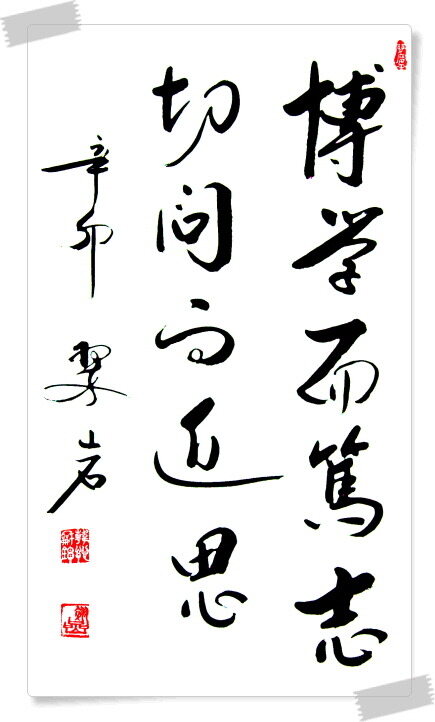 博学而篤志
切问而近思
辛卯 翠岩